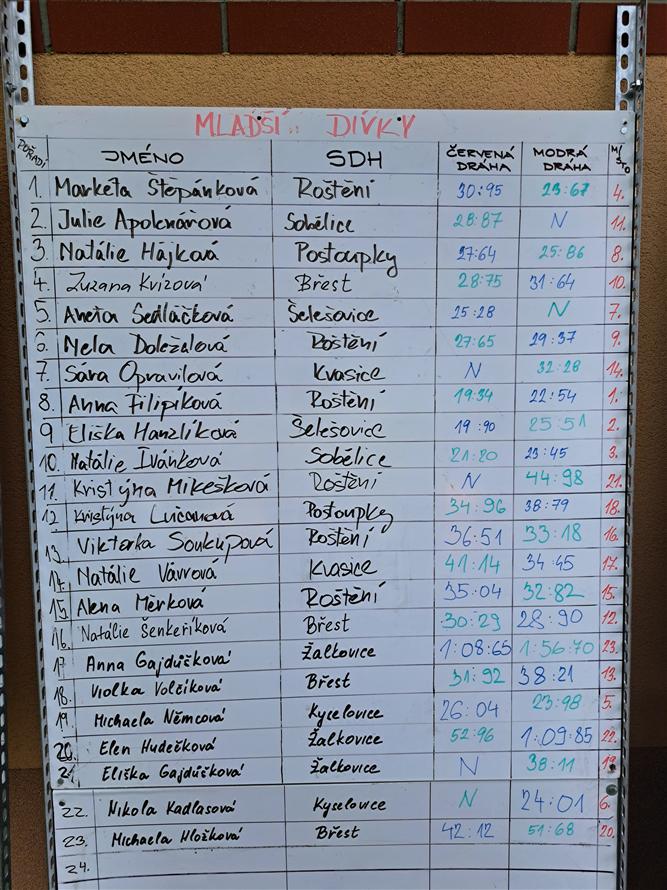 MLADŠÍ.. DÍVKY
POŘADÍ JMÉNO SDH ČERVENÁ DRÁHA MODRÁ DRÁHA MÍSTO
1. Markéta Štěpánková Roštění 30:95 23:67 4.
2. Julie Apolenářová Sobělice 28:87 N 11.
3. Natálie Hájková Postoupky 27:64 25:86 8.
4. Zuzana Kvízová Břest 28:75 31:64 10.
5. Aneta Sedláčková Šelešovice 25:28 N 7.
6. Nela Doležalová Roštění 27:65 29:37 9.
7. Sára Opravilová Kvasice N 32:28 14.
8. Anna Filipíková Roštění 19:34 22:54 1.
9 Eliška Hanzlíková Šelešovice 19:90 25:51 2.
10. Natálie Ivánková Sobělice 21:20 23:45 3.
11. Kristýna Mikešková Roštění N 44:98 21.
12 Kristýna Postoupky 34:96 38:79 18.
13. Viktorka Soukupová Roštění 36:51 33:18 16.
14. Natálie Vávrová Kvasice 41:14 34:45 17.
15. Alena Měrková Roštění 35:04 32:82 15.
16. Natálie Šenkeříková Břest 30:29 28:90 12.
17 Anna Gajdůčková Žalkovice 1:08:65 1:56:70 23.
18. Violka Volčíková Břest 31:92 38:21 13.
19. Michaela Němcová Kyselovice 26:04 23:98 5.
20. Elen Hudečková Žalkovice 52:96 1:09:85 22.
21 Eliška Gajdůčková Žalkovice N 38:11 19.
22. Nikola Kadlasová Kyselovice N 24:01 6.
23. Michaela Hložková Břest 42:12 51:68 20.
24.